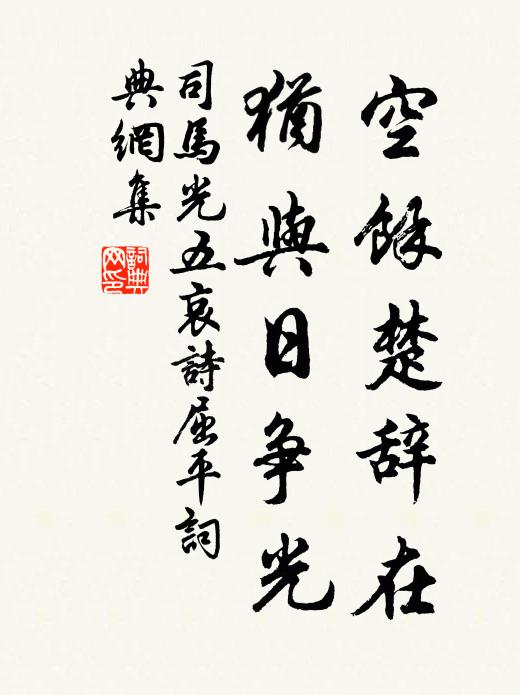 空餘楚辞在
猶與日争光
司馬光五哀詩屈平詞
典網集
詞典网印